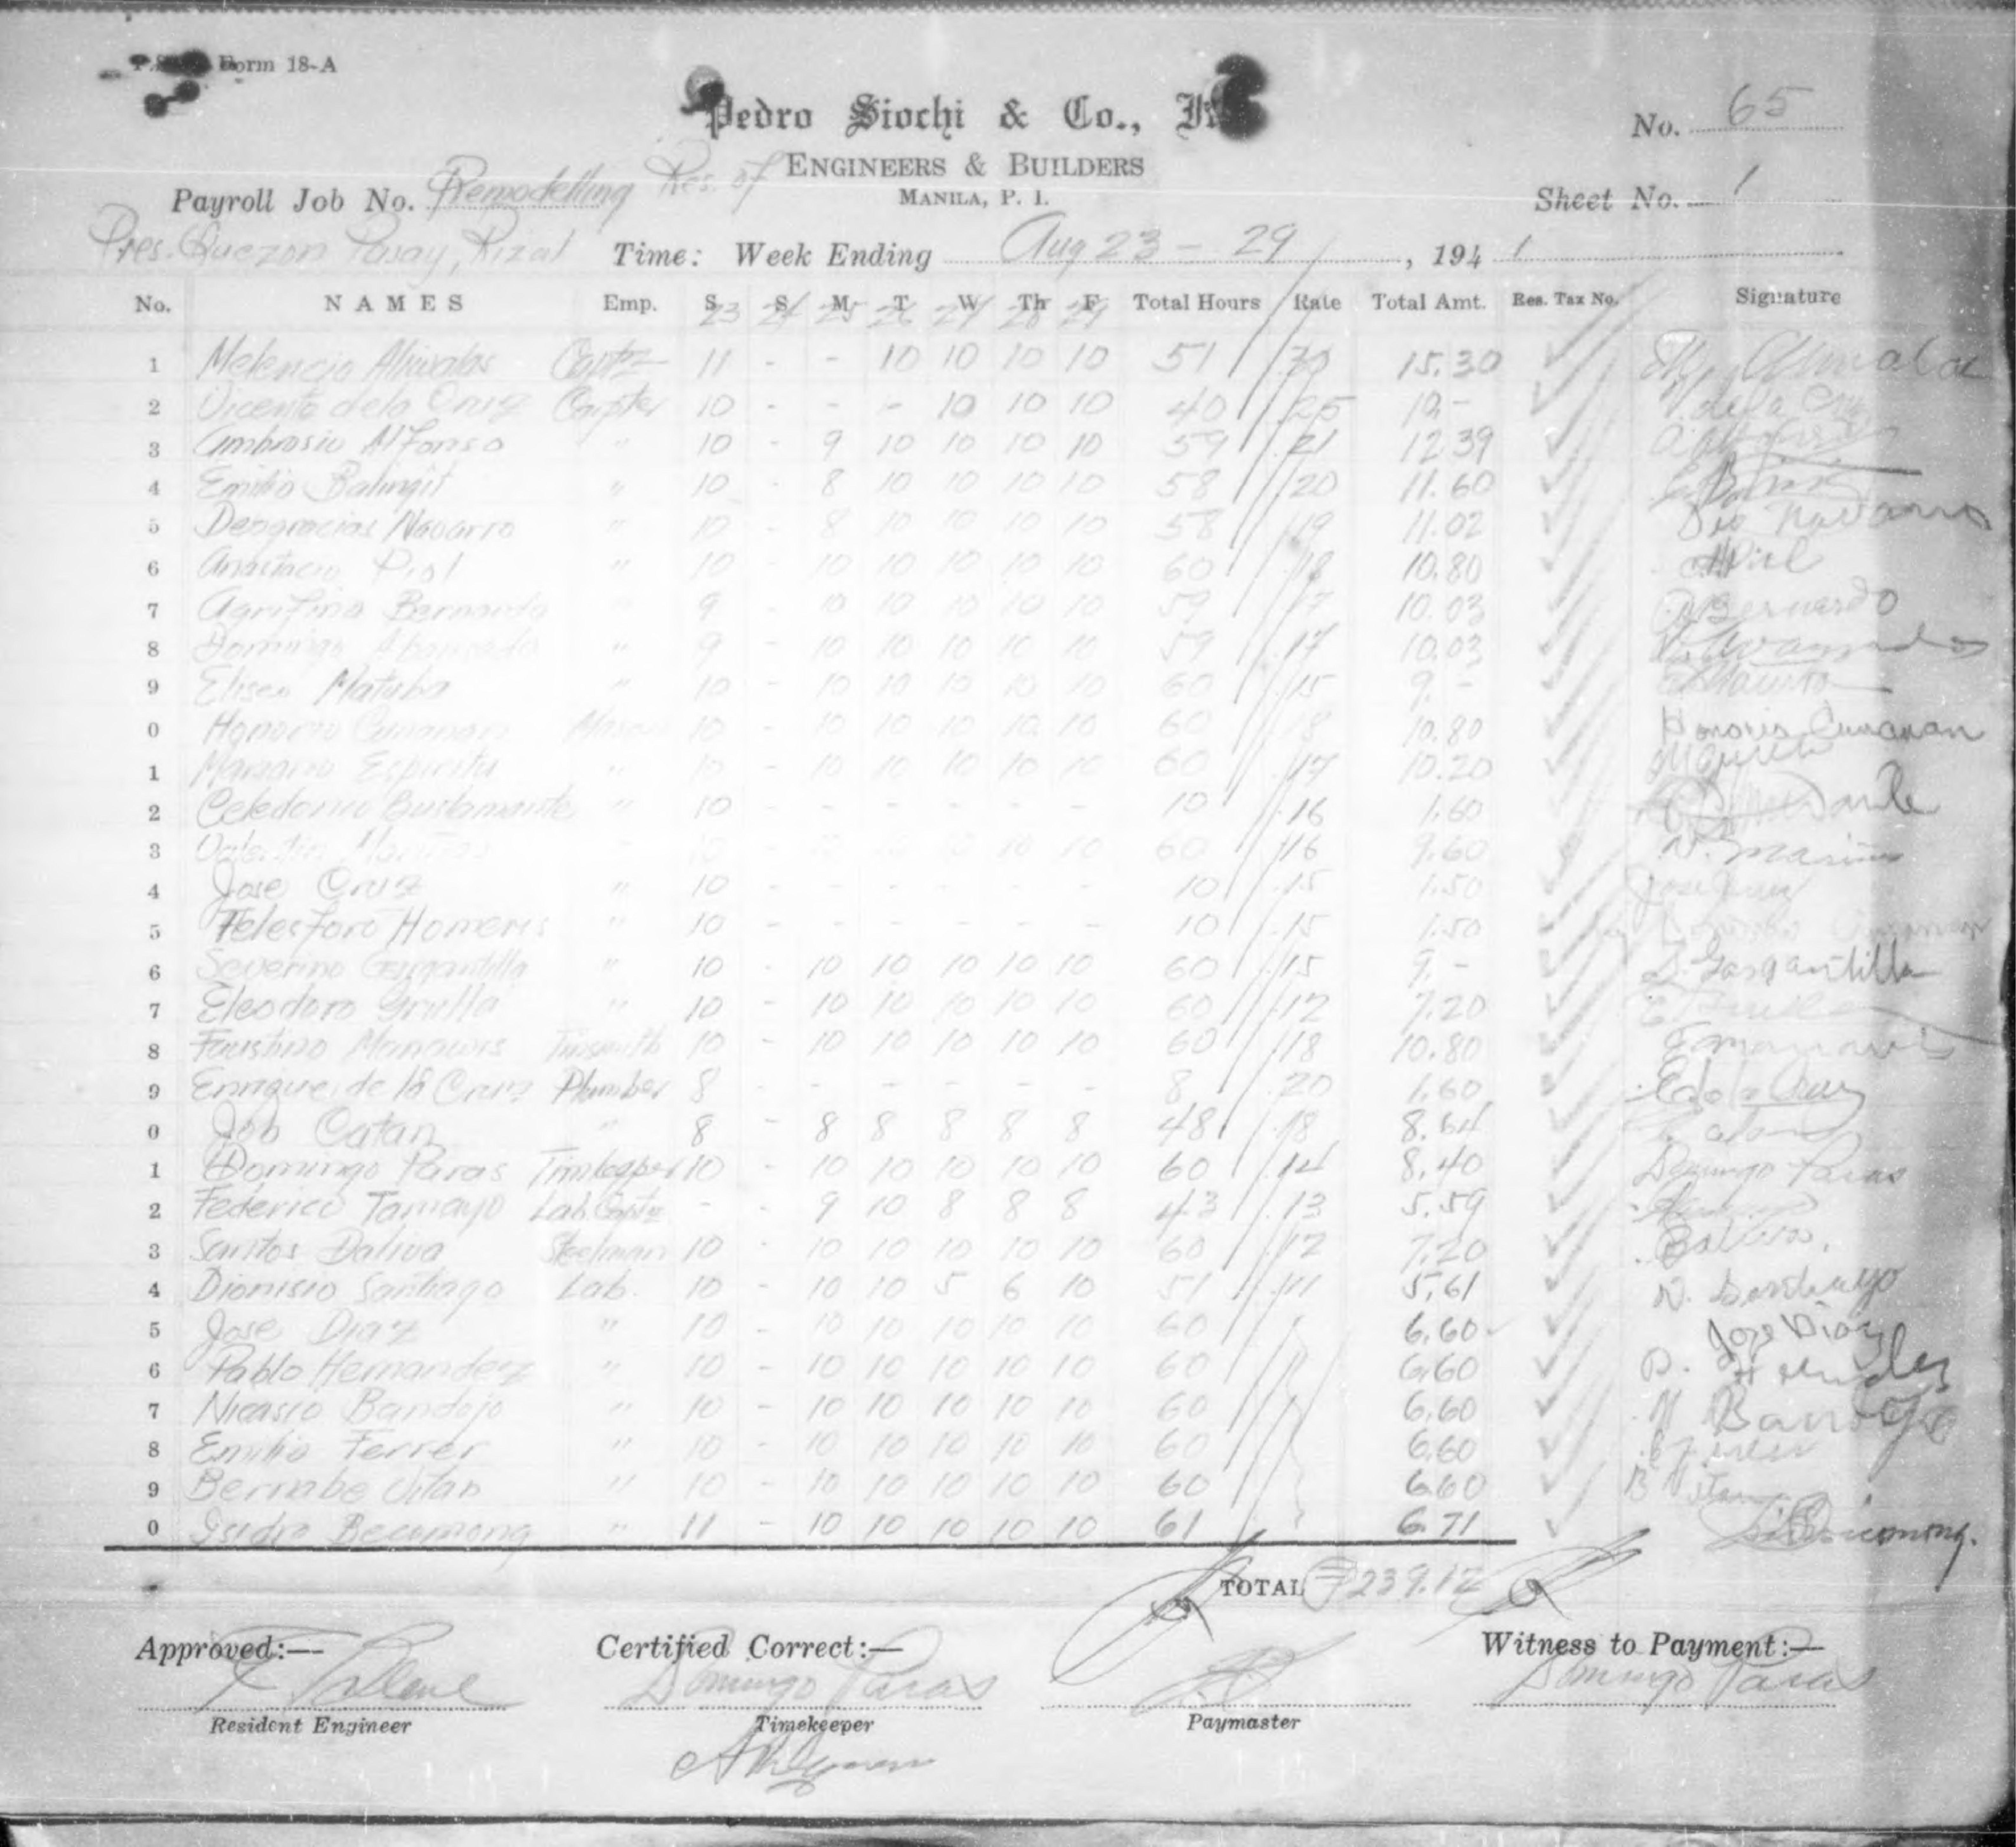 Form 18-A
Pedro Siochi & Co.,
No. 65
ENGINEERS & BUILDERS
Payroll Job No. Remodelling Res. of
MANILA, P. I.
Sheet No. 1
Pres. Quezon Pasay, Rizal Time: Week Ending Aug 23 - 29, 1941
No. NAMES Emp. S S M T W Th F Total Hours Rate Total Amt. Res. Tax No. Signature
23 24 25 26 27 28 29
1 Melencio 11 - - 10 10 10 10 51 30 15.30
2 Vicente dela Cruz Carpter 10 - - - 10 10 10 40 .25 10.- V. de la Cruz
3 Ambrosio Alfonso " 10 - 9 10 10 10 10 59 .21 12.39
4 Emilio Balingit " 10 - 8 10 10 10 10 58 .20 11.60
5 Deogracias Navarro " 10 - 8 10 10 10 10 58 .19 11.02 Deo Navarro
6 Anastacio Piol " 10 - 10 10 10 10 10 60 .18 10.80
7 Agrifino Bernardo " 9 - 10 10 10 10 10 59 .17 10.03 Bernardo
8 Domingo " 9 - 10 10 10 10 10 59 .17 10.03
9 Eliseo Matuba " 10 - 10 10 10 10 10 60 .15 9.-
0 Honorio Cunanan Mason 10 - 10 10 10 10 10 60 8 10.80 Honorio Cunanan
1 Mariano Espiritu " 10 - 10 10 10 10 10 60 .17 10.20
2 Celedonio Bustamante " 10 - - - - - - 10 .16 1.60
3 Valentin 10 - 10 10 10 10 10 60 .16 9.60
4 Jose Cruz " 10 - - - - - - 10 .15 1.50 Jose Cruz
5 Telesforo " 10 - - - - - - 10 .15 1.50
6 Severino Gargantilla " 10 - 10 10 10 10 10 60 .15 9.- S. Gargantilla
7 Eleodoro " 10 - 10 10 10 10 10 60 .12 7.20
8 Faustino Manawis Tinsmith 10 - 10 10 10 10 10 60 .18 10.80
9 Enrique de la Cruz Plumber 8 - - - - - - 8 .20 1.60 E. de la Cruz
0 Job Catan " 8 - 8 8 8 8 8 48 .18 8.64
1 Domingo Paras 10 - 10 10 10 10 10 60 .14 8.40 Domingo Paras
2 Federico Tamayo Lab. - - 9 10 8 8 8 43 .13 5.59
3 Santos Daliva Steelman 10 - 10 10 10 10 10 60 .12 7.20
4 Dionisio Santiago Lab. 10 - 10 10 5 6 10 51 .11 5.61 D. Santiago
5 Jose Diaz " 10 - 10 10 10 10 10 60 6.60 Jose Diaz
6 Pablo Hernandez " 10 - 10 10 10 10 10 60 6.60
7 Nicasio Bandojo " 10 - 10 10 10 10 10 60 6.60 N Bandojo
8 Emilio Ferrer " 10 - 10 10 10 10 10 60 6.60
9 Bernabe Vitan " 10 - 10 10 10 10 10 60 6.60 B Vitan
0 Isidro Becumong " 11 - 10 10 10 10 10 61 6.71
TOTAL ₱ 239.12
Approved:— Certified Correct:— Witness to Payment:—
Domingo Paras Domingo Paras
Resident Engineer Timekeeper Paymaster